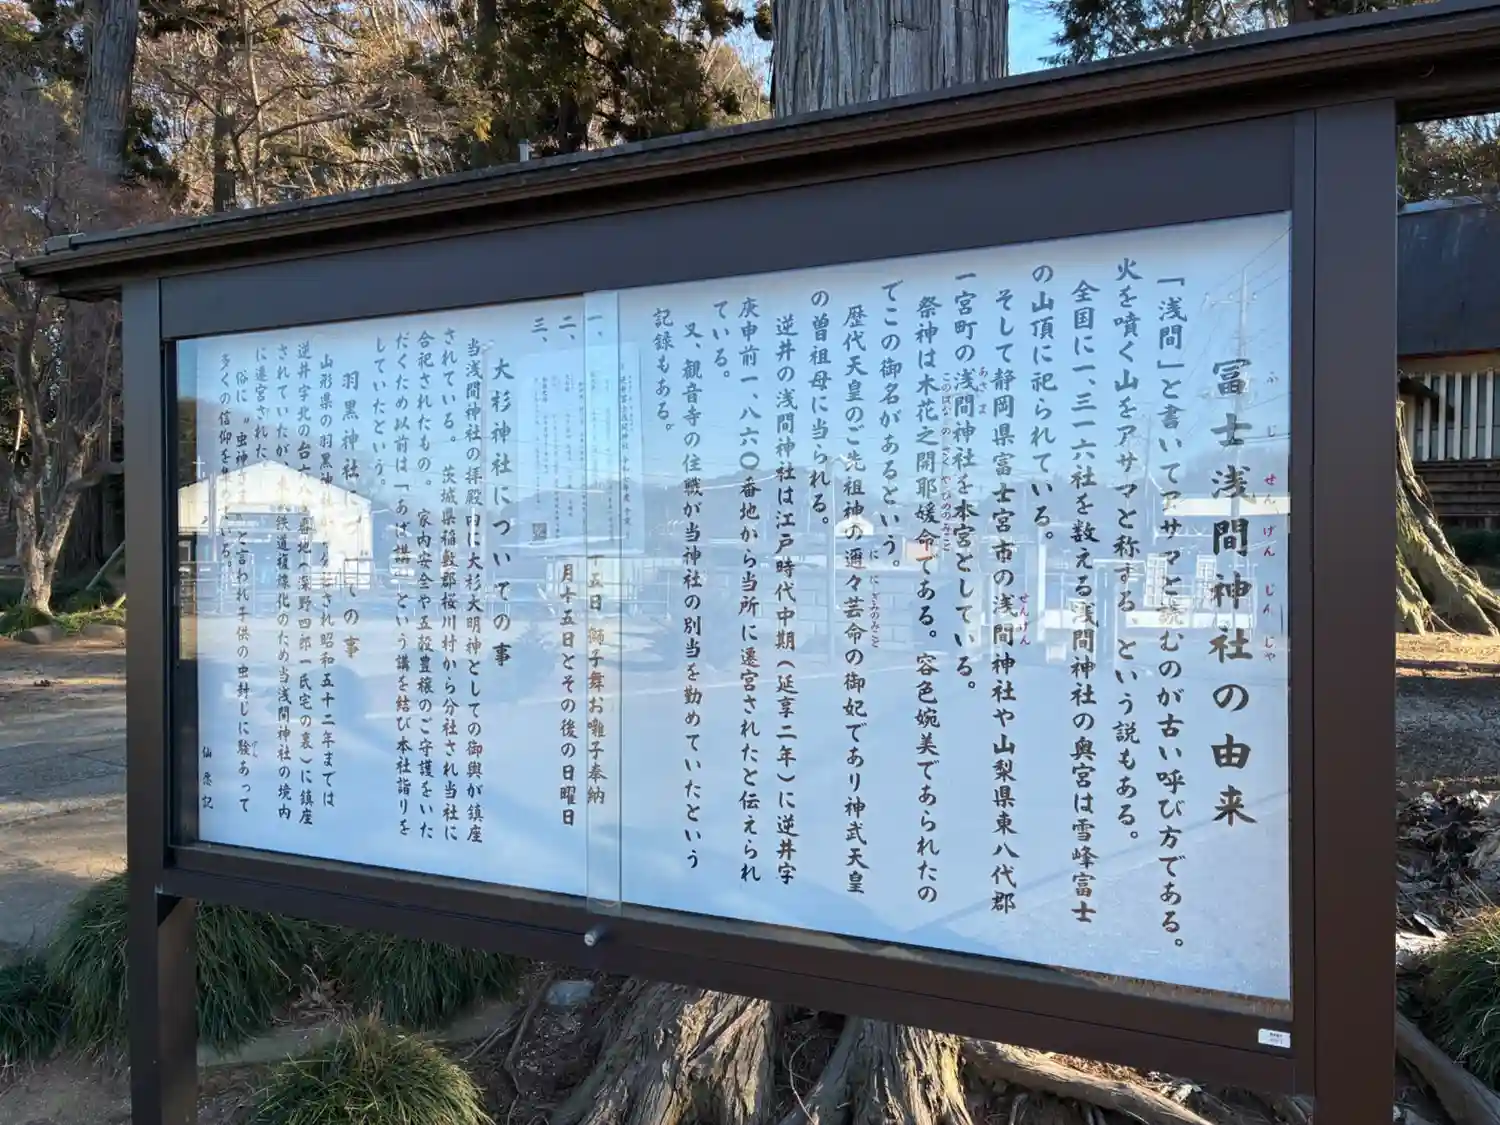 冨士浅間神社の由来
ふじせんげんじんじゃ
「浅間」と書いてアサマと読むのが古い呼び方である。
火を噴く山をアサマと称する、という説もある。
全国に一、三一六社を数える浅間神社の奥宮は雪峰富士
の山頂に祀られている。
そして静岡県富士宮市の浅間神社や山梨県東八代郡
せんげん
一宮町の浅間神社を本宮としている。
あさま
祭神は木花之開耶媛命である。容色婉美であられたの
でこの御名があるという。
歴代天皇のご先祖神の邇々芸命の御妃であり神武天皇
に にぎみのみこと
の曽祖母に当られる。
逆井の浅間神社は江戸時代中期(延享二年)に逆井字
庚申前一、八六〇番地から当所に遷宮されたと伝えられ
ている。
又、観音寺の住職が当神社の別当を勤めていたという
記録もある。
一、
十五日 獅子舞お囃子奉納
二、
月十五日とその後の日曜日
三、
大杉神社についての事
当浅間神社の拝殿内に大杉大明神としての御輿が鎮座
されている。茨城県稲敷郡桜川村から分社され当社に
合祀されたもの。家内安全や五穀豊穣のご守護をいた
だくため以前は「あば講」という講を結び本社詣りを
していたという。
羽黒神社 ての事
山形県の羽黒神社 され昭和五十二年までは
逆井字北の台 番地(深野四郎一氏宅の裏)に鎮座
されていたが 鉄道複線化のため当浅間神社の境内
に遷宮された
俗に〝虫神さま〟と言われ子供の虫封じに験あって
げん
多くの信仰を いる。
記